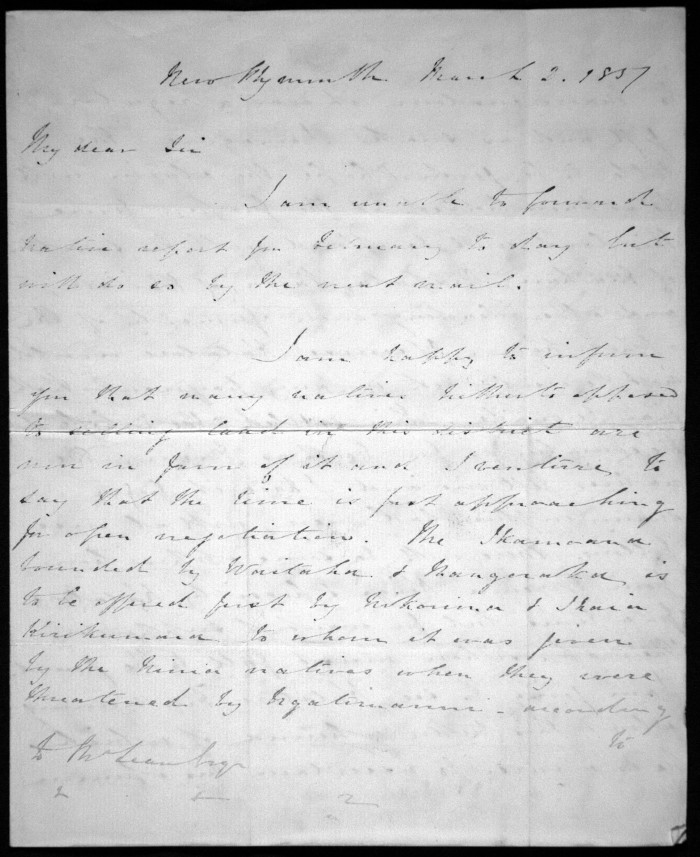 New Plymouth March 2. 1857
My dear Sir
I am unable to forward
native report for February to day but
will do so by the next mail.
I am happy to inform
you that many natives hitherto opposed
to selling land in this district are
now in favor of it and I venture to
say that the time is fast approaching
for open negotiation. The Ikamoana
bounded by Waitaha & Mangoraka is
to be offered first by Nikorima & Ihaia
Kirikumara to whom it was given
by the Ninia natives when they were
threatened by Ngatimaniapoto according
to
D McLean Esqr